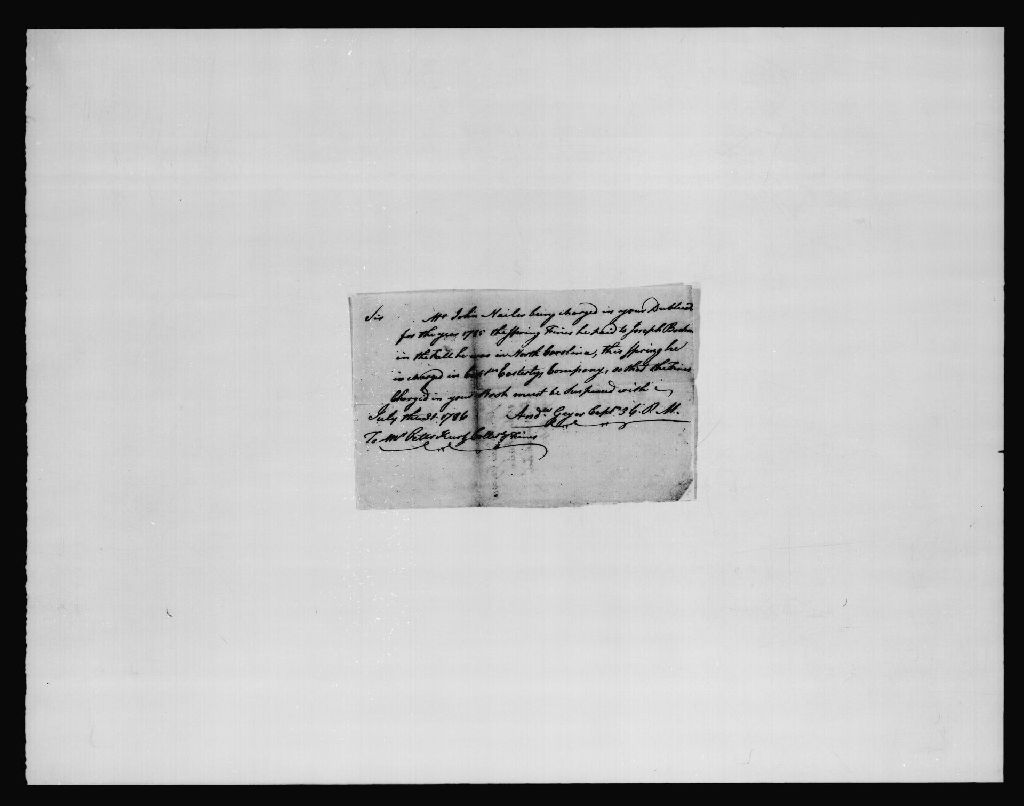 Sir Mr John Nailer being charged in your Duplicate
for the year 1785 the Spring Fines he paid to Joseph
in the Fall he was in North Carolina, this Spring he
is charged in Captn Company, so that the Fines
Charged in your Book must be Suspened with
July the 1786 Andw Geyer Captn 3d C. P. M.
To Mr Peter Collr of Fines